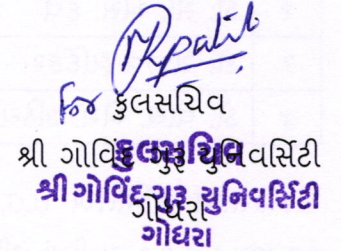 MRpatil
for કુલસચિવ
શ્રી ગોવિંદ ગુરૂ યુનિવર્સિટી
કુલસચિવ
ગોધરા
શ્રી ગોવિંદ ગુરૂ યુનિવર્સિટી
ગોધરા